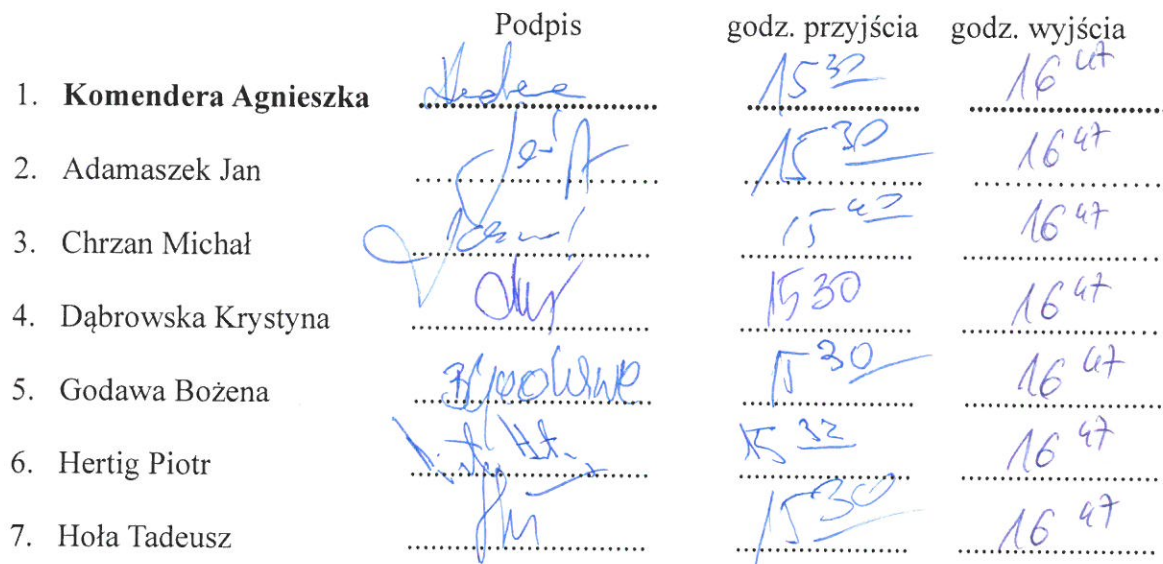 Podpis godz. przyjścia godz. wyjścia
1. Komendera Agnieszka 16 47
2. Adamaszek Jan 15 30 16 47
3. Chrzan Michał 15 42 16 47
4. Dąbrowska Krystyna 15 30 16 47
5. Godawa Bożena 15 30 16 47
6. Hertig Piotr 15 32 16 47
7. Hoła Tadeusz 15 30 16 47